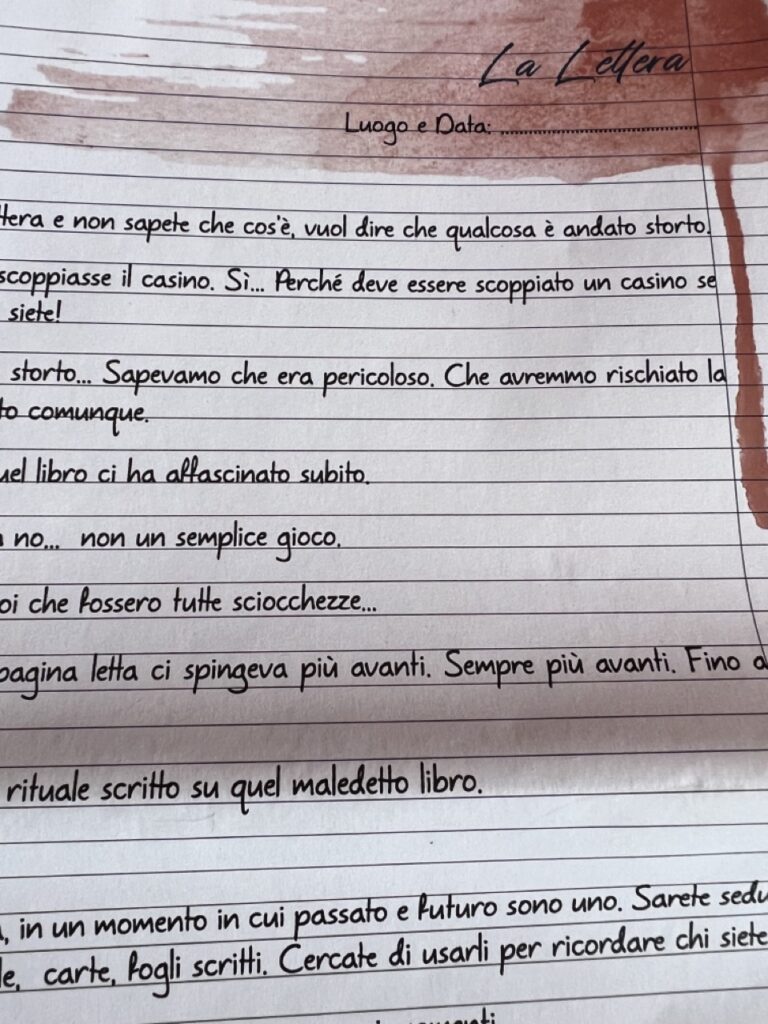 La Lettera
Luogo e Data: ........................................
ttera e non sapete che cos'è, vuol dire che qualcosa è andato storto.
scoppiasse il casino. Sì... Perché deve essere scoppiato un casino se
siete!
storto... Sapevamo che era pericoloso. Che avremmo rischiato la
to comunque.
uel libro ci ha affascinato subito.
no... non un semplice gioco.
oi che fossero tutte sciocchezze...
pagina letta ci spingeva più avanti. Sempre più avanti. Fino a
rituale scritto su quel maledetto libro.
, in un momento in cui passato e futuro sono uno. Sarete sedu
le, carte, fogli scritti. Cercate di usarli per ricordare chi siete